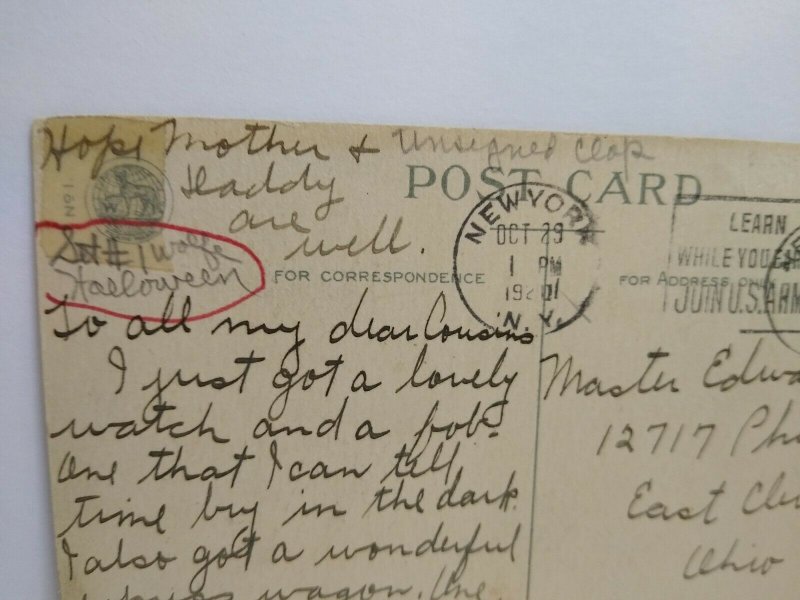 Hope Mother & Unsigned Clap
Daddy
are
well.
POST CARD
No 1
Set #1 Wolfe
Halloween
FOR CORRESPONDENCE
FOR ADDRESS ONLY
NEW YORK
OCT 29
1 PM
N.Y.
LEARN
WHILE YOU
JOIN U.S. ARM
To all my dear Cousins
I just got a lovely
watch and a fob-
One that I can tell
time by in the dark.
I also got a wonderful
wagon. One
Master Edwa
12717
East Cle
Ohio